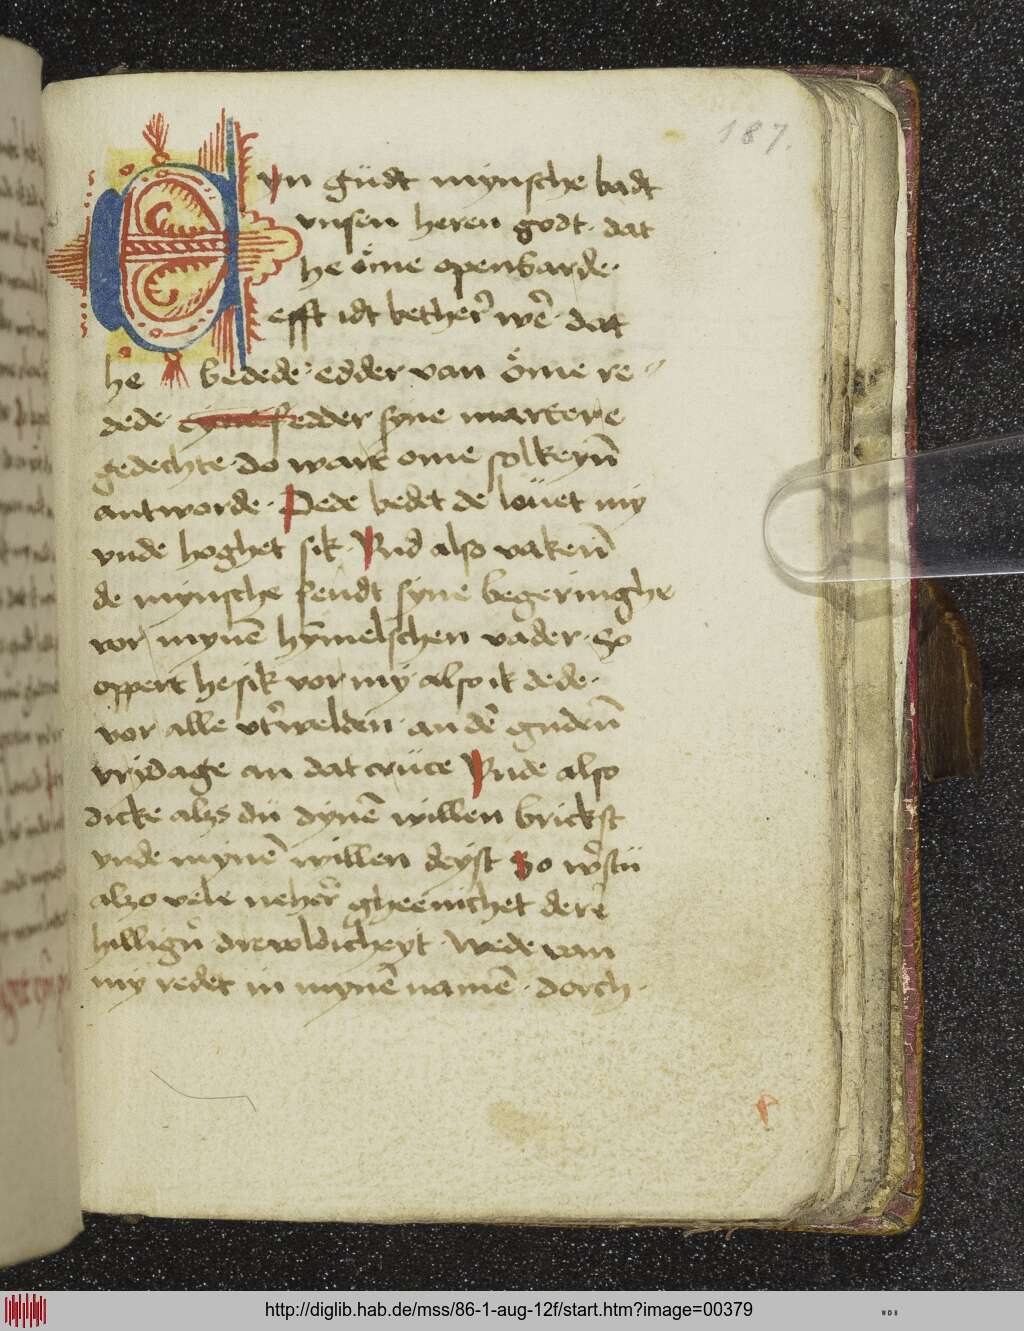 187.
Eyn gůdt mynsche badt
vnsen heren godt. dat
he öme openbarde.
efft idt bether̄ wer̄. dat
he bedede. edder van öme re
dede. syne edder syne martere
gedechte. do wart ome solkeyn̄
antworde. Dede bedet de louet my
vnde hoghet sik. Vnd also vaken̄
de mynsche sendt syne begeringhe
vor mynē hȳmelschen vader. So
oppert he sik vor my also ik dede.
vor alle vt̄welden. an dē guden̄
vrydage an dat crüce Vnde also
dicke alzo du dynē willen brickst
vnde mynē willen deyst So wstu
alzo vele neher̄ gheeinichet dere
hillign̄ drewoldicheyt. Wede van
my redet in mynē namē. dorch.
http://diglib.hab.de/mss/86-1-aug-12f/start.htm?image=00379